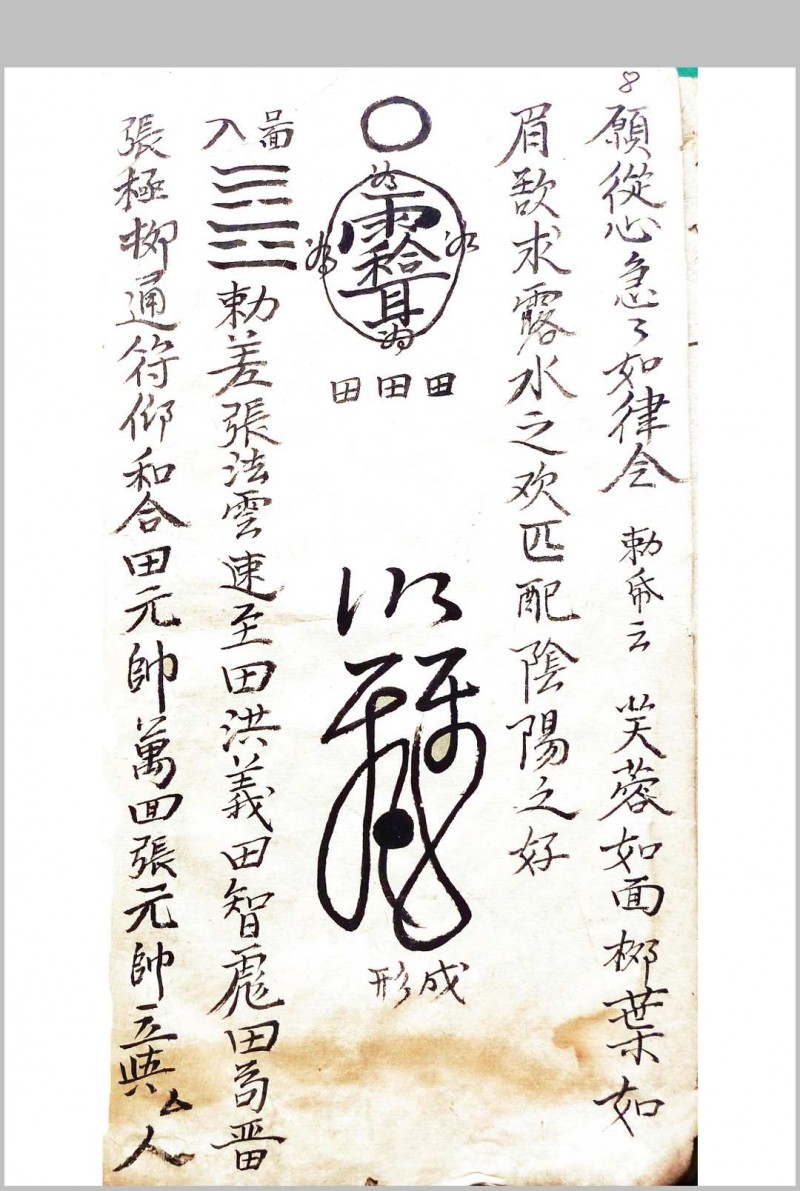 願從心急〻如律令 勅帋云 芙蓉如面柳葉如
眉欲求露水之欢匹配陰陽之好
田田田
形成
入
勅差張法雲速至田洪義田智彪田苟晋
張極柳通符仰和合田元帥萬回張元帥立與厶人